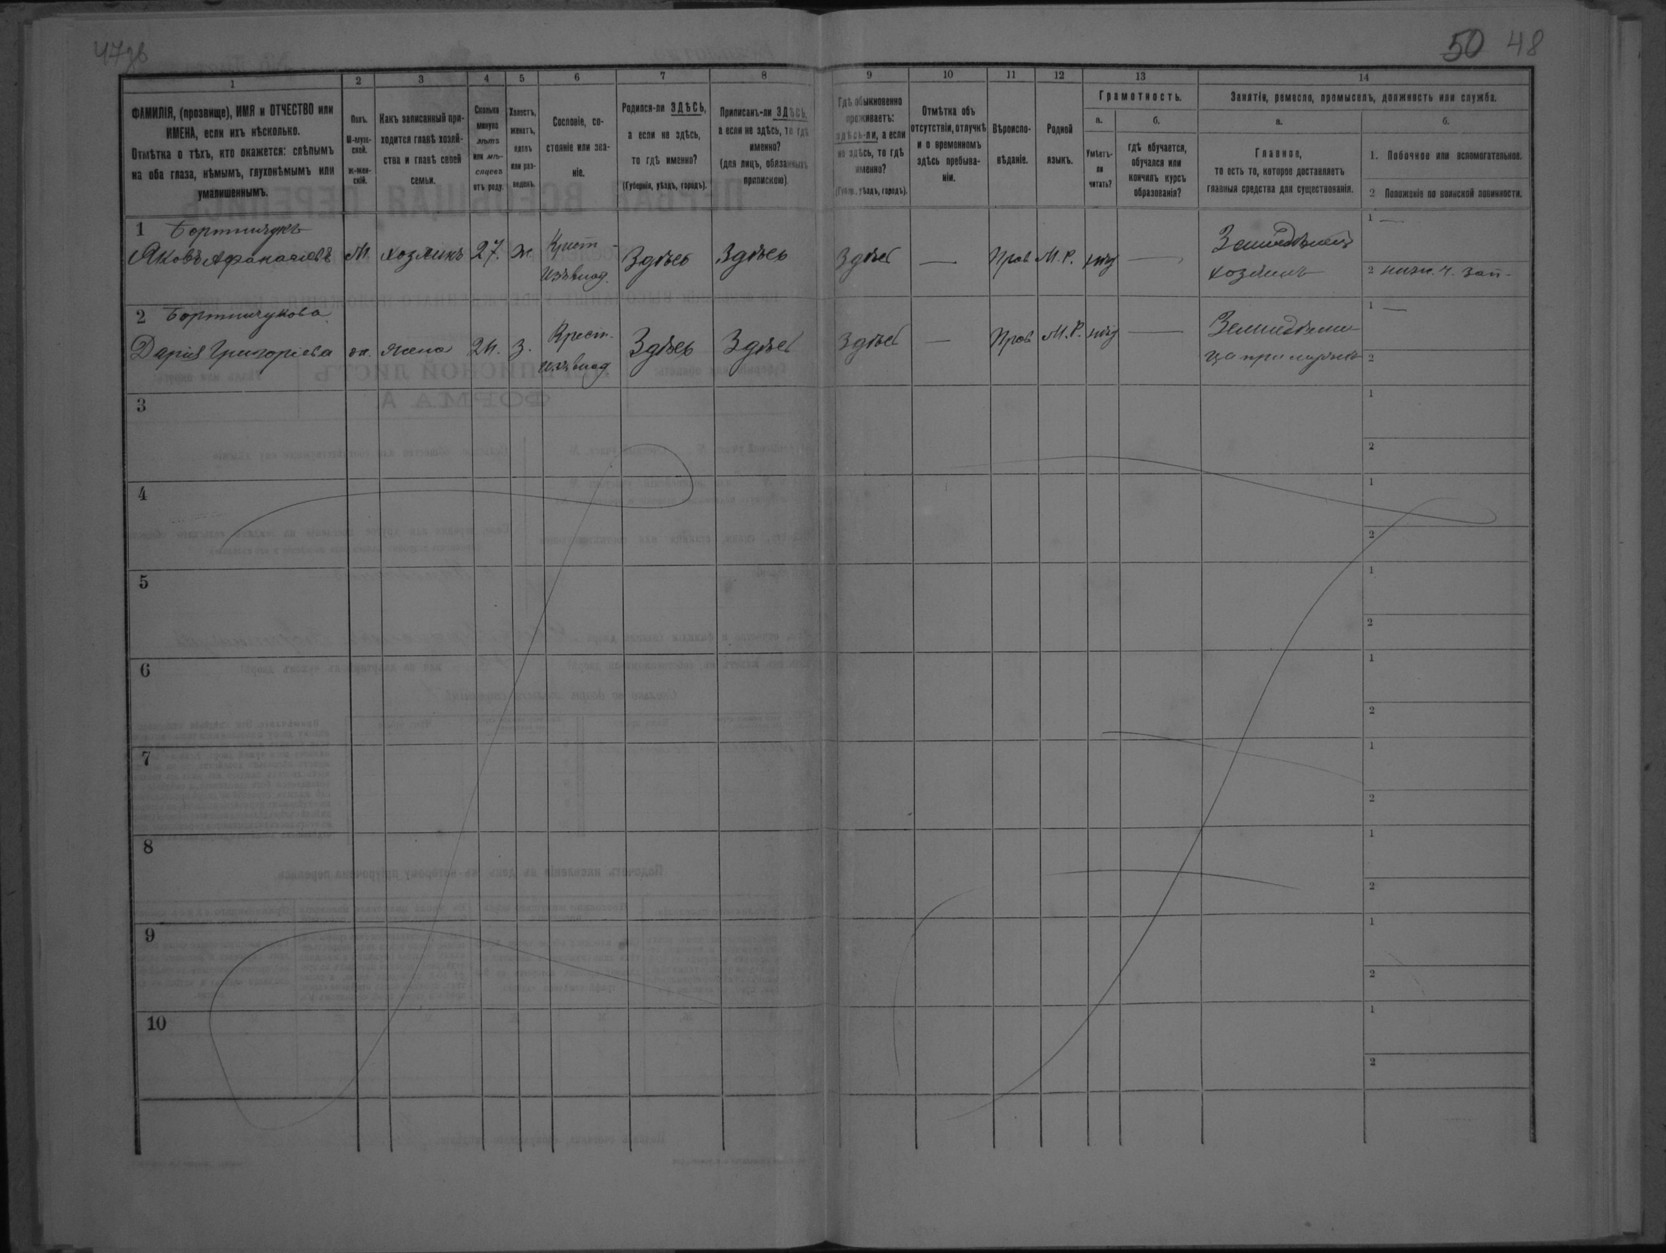 47об
50 48
1 2 3 4 5 6 7 8 9 10 11 12 13 14
ФАМИЛІЯ, (прозвище), ИМЯ и ОТЧЕСТВО или
ИМЕНА, если ихъ нѣсколько.
Отмѣтка о тѣхъ, кто окажется: слѣпымъ
на оба глаза, нѣмымъ, глухонѣмымъ или
умалишеннымъ.
Полъ.
М-муж-
ской.
ж-жен-
скій.
Какъ записанный при-
ходится главѣ хозяй-
ства и главѣ своей
семьи.
Сколько
минуло
лѣтъ
или мѣ-
сяцевъ
отъ роду.
Холостъ,
женатъ,
вдовъ
или раз-
веденъ.
Сословіе, со-
стояніе или зва-
ніе.
Родился-ли ЗДѢСЬ,
а если не здѣсь,
то гдѣ именно?
(Губернія, уѣздъ, городъ).
Приписанъ-ли ЗДѢСЬ,
а если не здѣсь, то гдѣ
именно?
(для лицъ, обязанныхъ
припискою)
Гдѣ обыкновенно
проживаетъ:
здѣсь-ли, а если
не здѣсь, то гдѣ
именно?
(Губерн., уѣздъ, городъ).
Отмѣтка объ
отсутствіи, отлучкѣ
и о временномъ
здѣсь пребыва-
ніи.
Вѣроиспо-
вѣданіе.
Родной
языкъ.
Грамотность.
а.
Умѣетъ-
ли
читать?
б.
гдѣ обучается,
обучался или
кончилъ курсъ
образованія?
Занятія, ремесло, промыселъ, должность или служба.
а.
Главное,
то есть то, которое доставляетъ
главныя средства для существованія.
б.
1. Побочное или вспомогательное.
2 Положеніе по воинской повинности.
1 Бортничукъ
Яковъ Афанасіевъ М. хозяинъ 27. ж. Крест. Здѣсь Здѣсь Здѣсь — Прав М.Р. нѣт — 1 —
изъ влад.
хозяинъ 2 нижн. ч. зап.
2 Бортничукова
Дарія Григоріева жена з. Крест. Здѣсь Здѣсь Здѣсь — Прав М.Р. нѣт — 1 —
изъ влад. 2
3 1
2
4 1
2
5 1
2
6 1
2
7 1
2
8 1
2
9 1
2
10 1
2